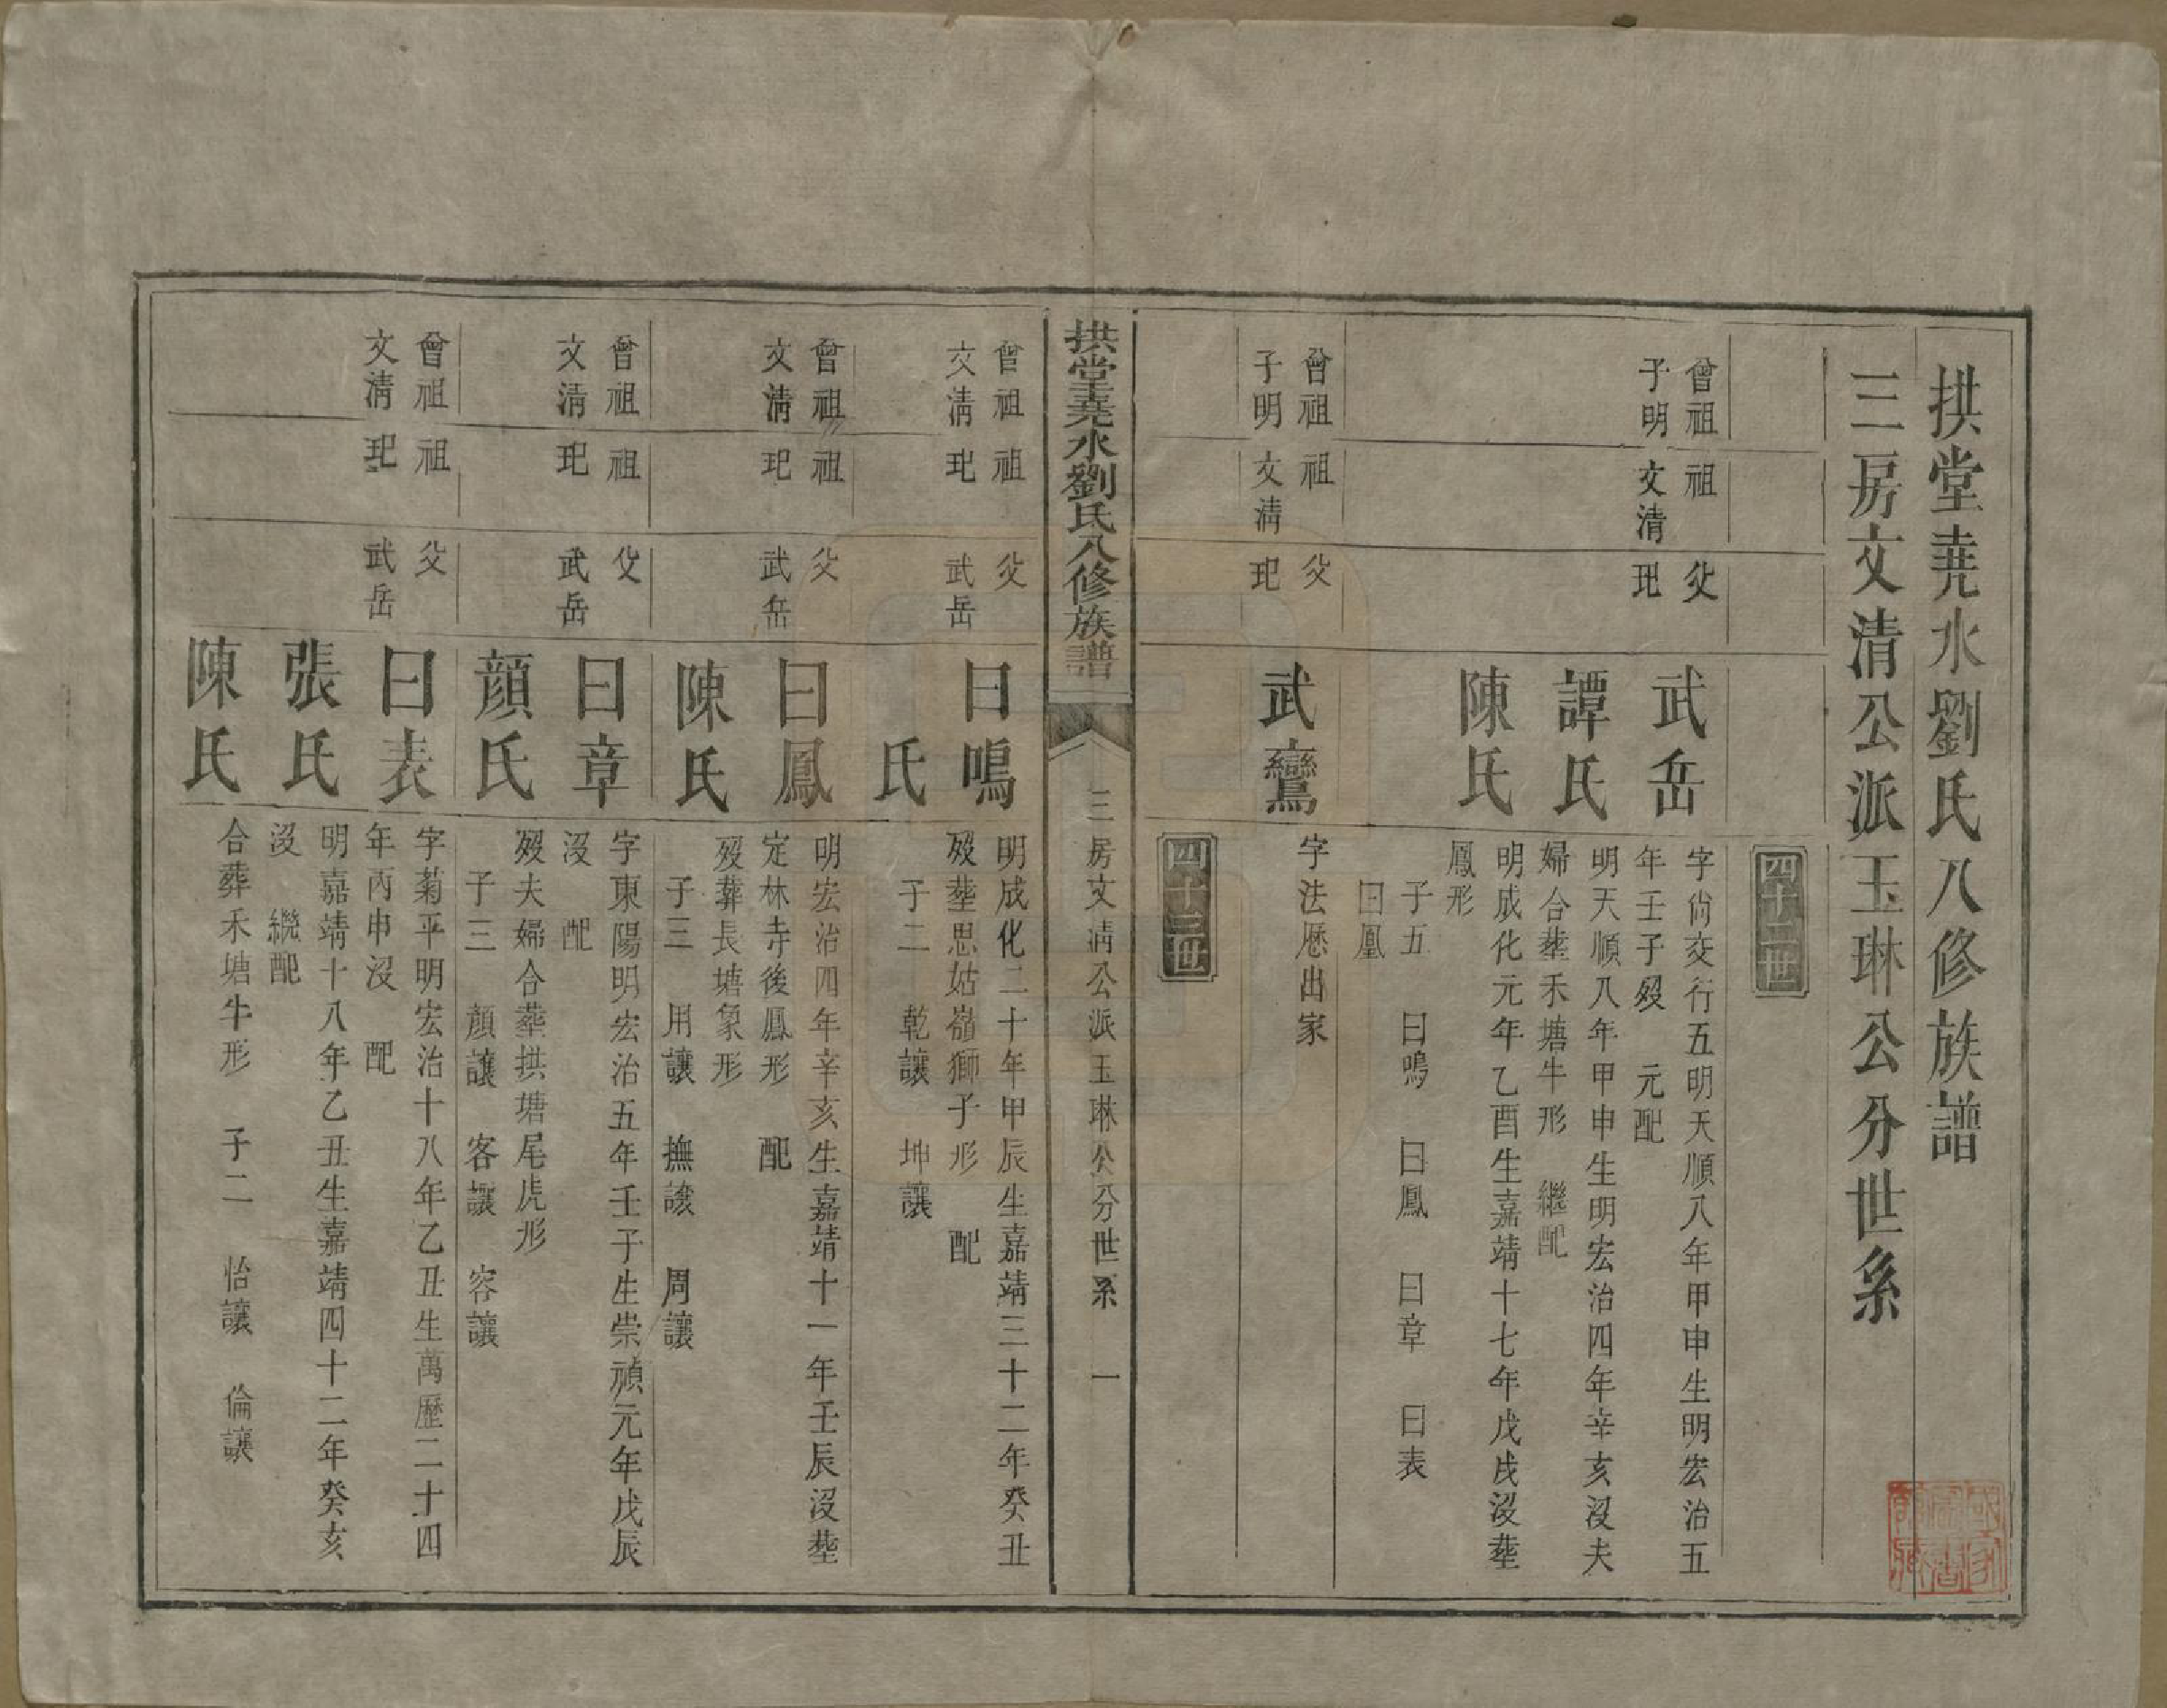 拱堂堯水劉氏八修族譜
三房文清公派玉琳公分世系
四十二世
曾祖
子明
祖
文清
父
玘
武岳
字尙交行五明天順八年甲申生明宏治五
年壬子歿 元配
譚氏
明天順八年甲申生明宏治四年辛亥沒夫
婦合塟禾塘牛形 繼配
陳氏
明成化元年乙酉生嘉靖十七年戊戌沒塟
鳳形
子五 曰鳴 曰鳳 曰章 曰表
曰凰
曾祖
子明
祖
文清
父
玘
武鸞
字法愿出家
四十三世
拱堂堯水劉氏八修族譜
三房文清公派玉琳公分世系 一
曾祖
文清
祖
玘
父
武岳
曰鳴
明成化二十年甲辰生嘉靖三十二年癸丑
歿塟思姑嶺獅子形 配
氏
子二 乾讓 坤讓
曾祖
文清
祖
玘
父
武岳
曰鳳
明宏治四年辛亥生嘉靖十一年壬辰沒塟
定林寺後鳳形 配
陳氏
歿葬長塘象形
子三 用讓 撫讓 周讓
曾祖
文清
祖
玘
父
武岳
曰章
字東陽明宏治五年壬子生崇禎元年戊辰
沒 配
顏氏
歿夫婦合塟拱塘尾虎形
子三 顏讓 客讓 容讓
曾祖
文清
祖
玘
父
武岳
曰表
字菊平明宏治十八年乙丑生萬歷二十四
年丙申沒 配
張氏
明嘉靖十八年乙丑生嘉靖四十二年癸亥
沒 繼配
陳氏
合葬禾塘牛形 子二 怡讓 倫讓